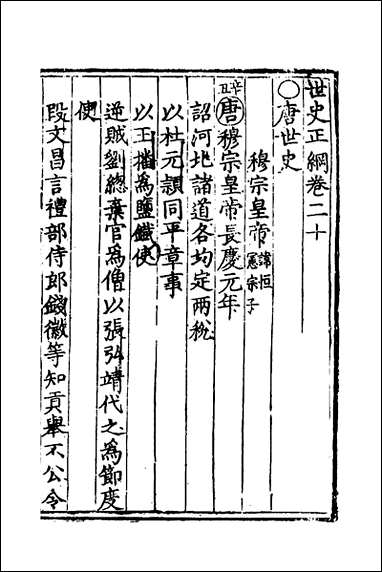 世史正綱卷二十
○唐世史
穆宗皇帝諱恒憲宗子
辛丑唐穆宗皇帝長慶元年
詔河北諸道各均定兩稅
以杜元頴同平章事
以王播為鹽鐵使
逆賊劉總棄官為僧以張弘靖代之為節度
使
段文昌言禮部侍郎錢徽等知貢舉不公令